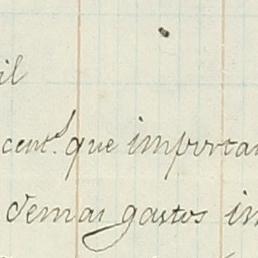 il
cent.s que importa
demas gastos i